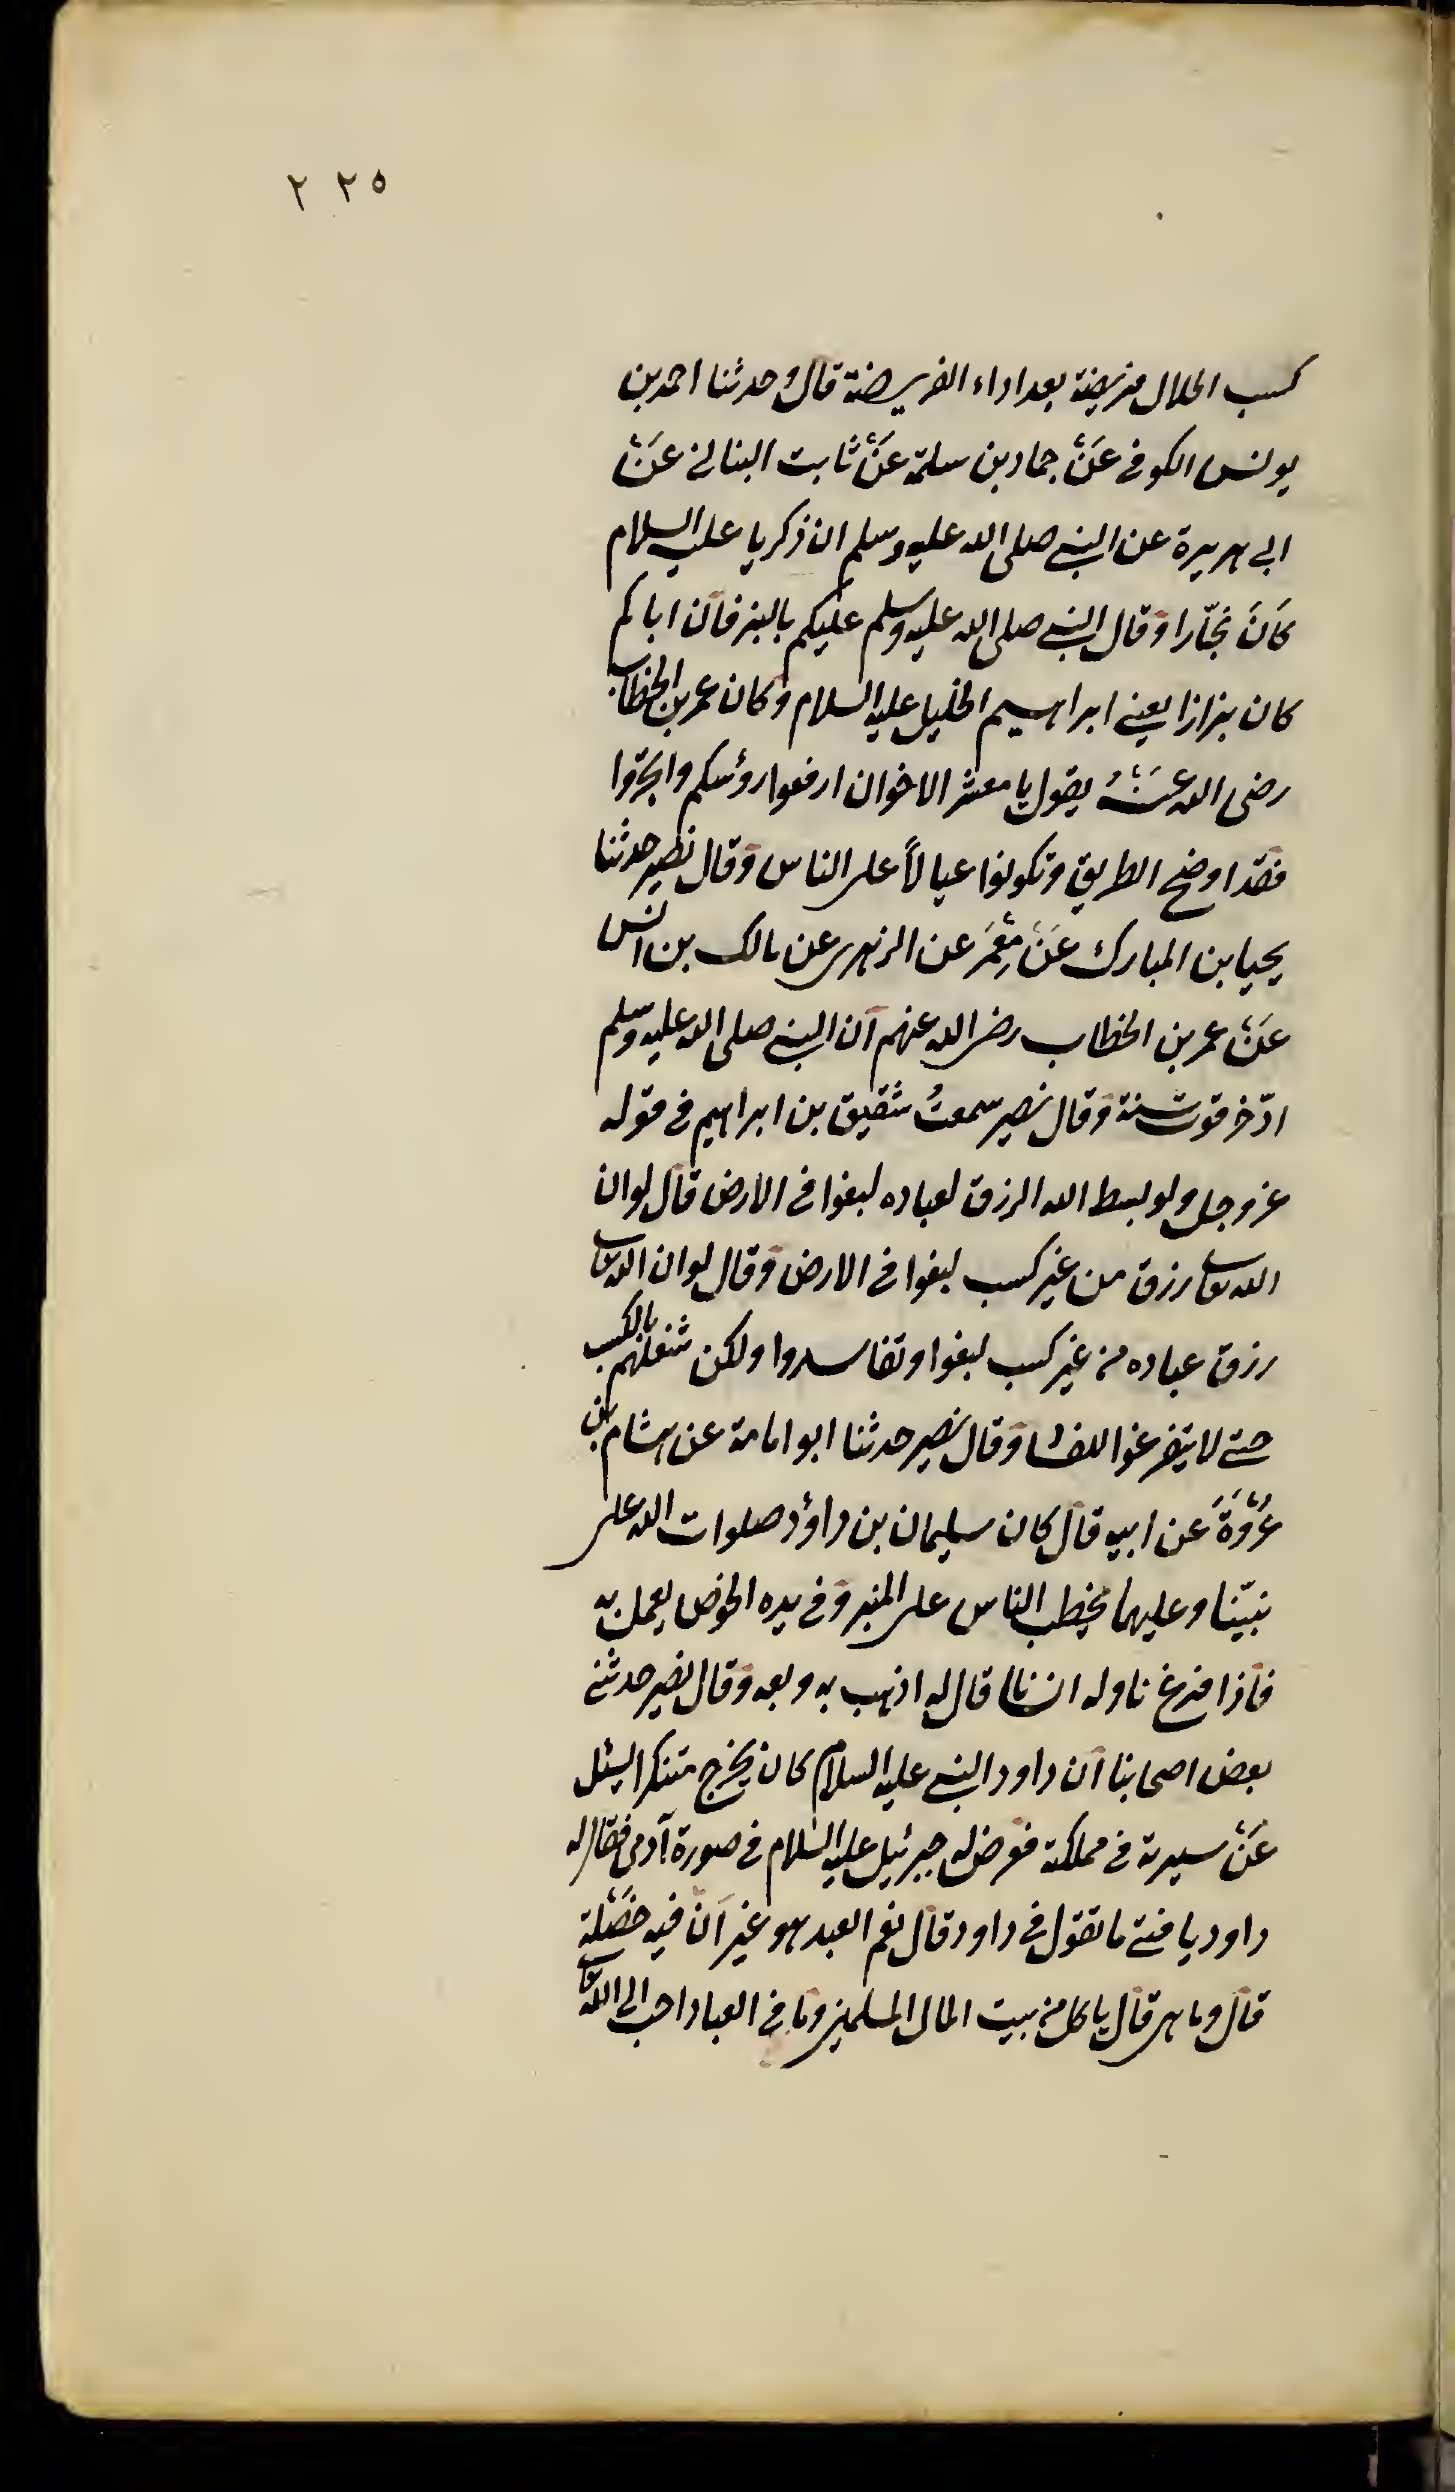 ٢٢٥
كسب الحلال فريضة بعد اداء الفريضة قال وحدثنا احمد بن
يونس الكوفى عَنْ حماد بن سلمة عَنْ ثابت البنانى عَنْ
ابى هريرة عن النبى صلى الله عليه وسلم ان زكريا عليه السلام
كَانَ نجّارا وقال النبى صلى الله عليه وسلم عليكم بالبز فان اباكم
كان بزازا يعنى ابراهيم الخليل عليه السلام وكان عمر بن الخطاب
رضى الله عَنْهُ يقول يا معشر الاخوان ارفعوا رؤسكم واتجروا
فقد اوضح الطريق وتكونوا عيالاً على الناس وقال نصير حدثنا
يحيا بن المبارك عَنْ مِعْمَر عن الزهرى عن مالك بن انس
عَنْ عمر بن الخطاب رضى الله عنهم ان النبى صلى الله عليه وسلم
ادّخر قوت سنة وقال نصير سمعتُ شقيق بن ابراهيم فى قوله
عز وجل ولو بسط الله الرزق لعباده لبغوا فى الارض قال لوان
الله تعالى رزق من غير كسب لبغوا فى الارض وقال لوان الله تعالى
رزق عباده من غير كسب لبغوا وتفاسدوا ولكن شغلهم بالكسب
حتى لا يتفرغوا للفساد وقال نصير حدثنا ابو امامة عن هشام بن
عُرْوَةَ عن ابيه قال كان سليمان بن داؤد صلوات الله على
نبيّنا وعليهما يخطب الناس على المنبر وفى يده الخوص يعمل به
فاذا فرغ ناوله انسانا قال له اذهب به وبعه وقال نصير حدثنى
بعض اصحابنا ان داود النبى عليه السلام كان يخرج متنكرا ليسئل
عَنْ سيرته فى مملكته فعرض له جبرئيل عليه السلام فى صورة آدمى فقال له
داود يا فتى ما تقول فى داود قال نعم العبد هو غير انّ فيه خَصْلة
قال وما هى قال ياكل من بيت المال المسلمين وما فى العباد احب الى الله تعالى